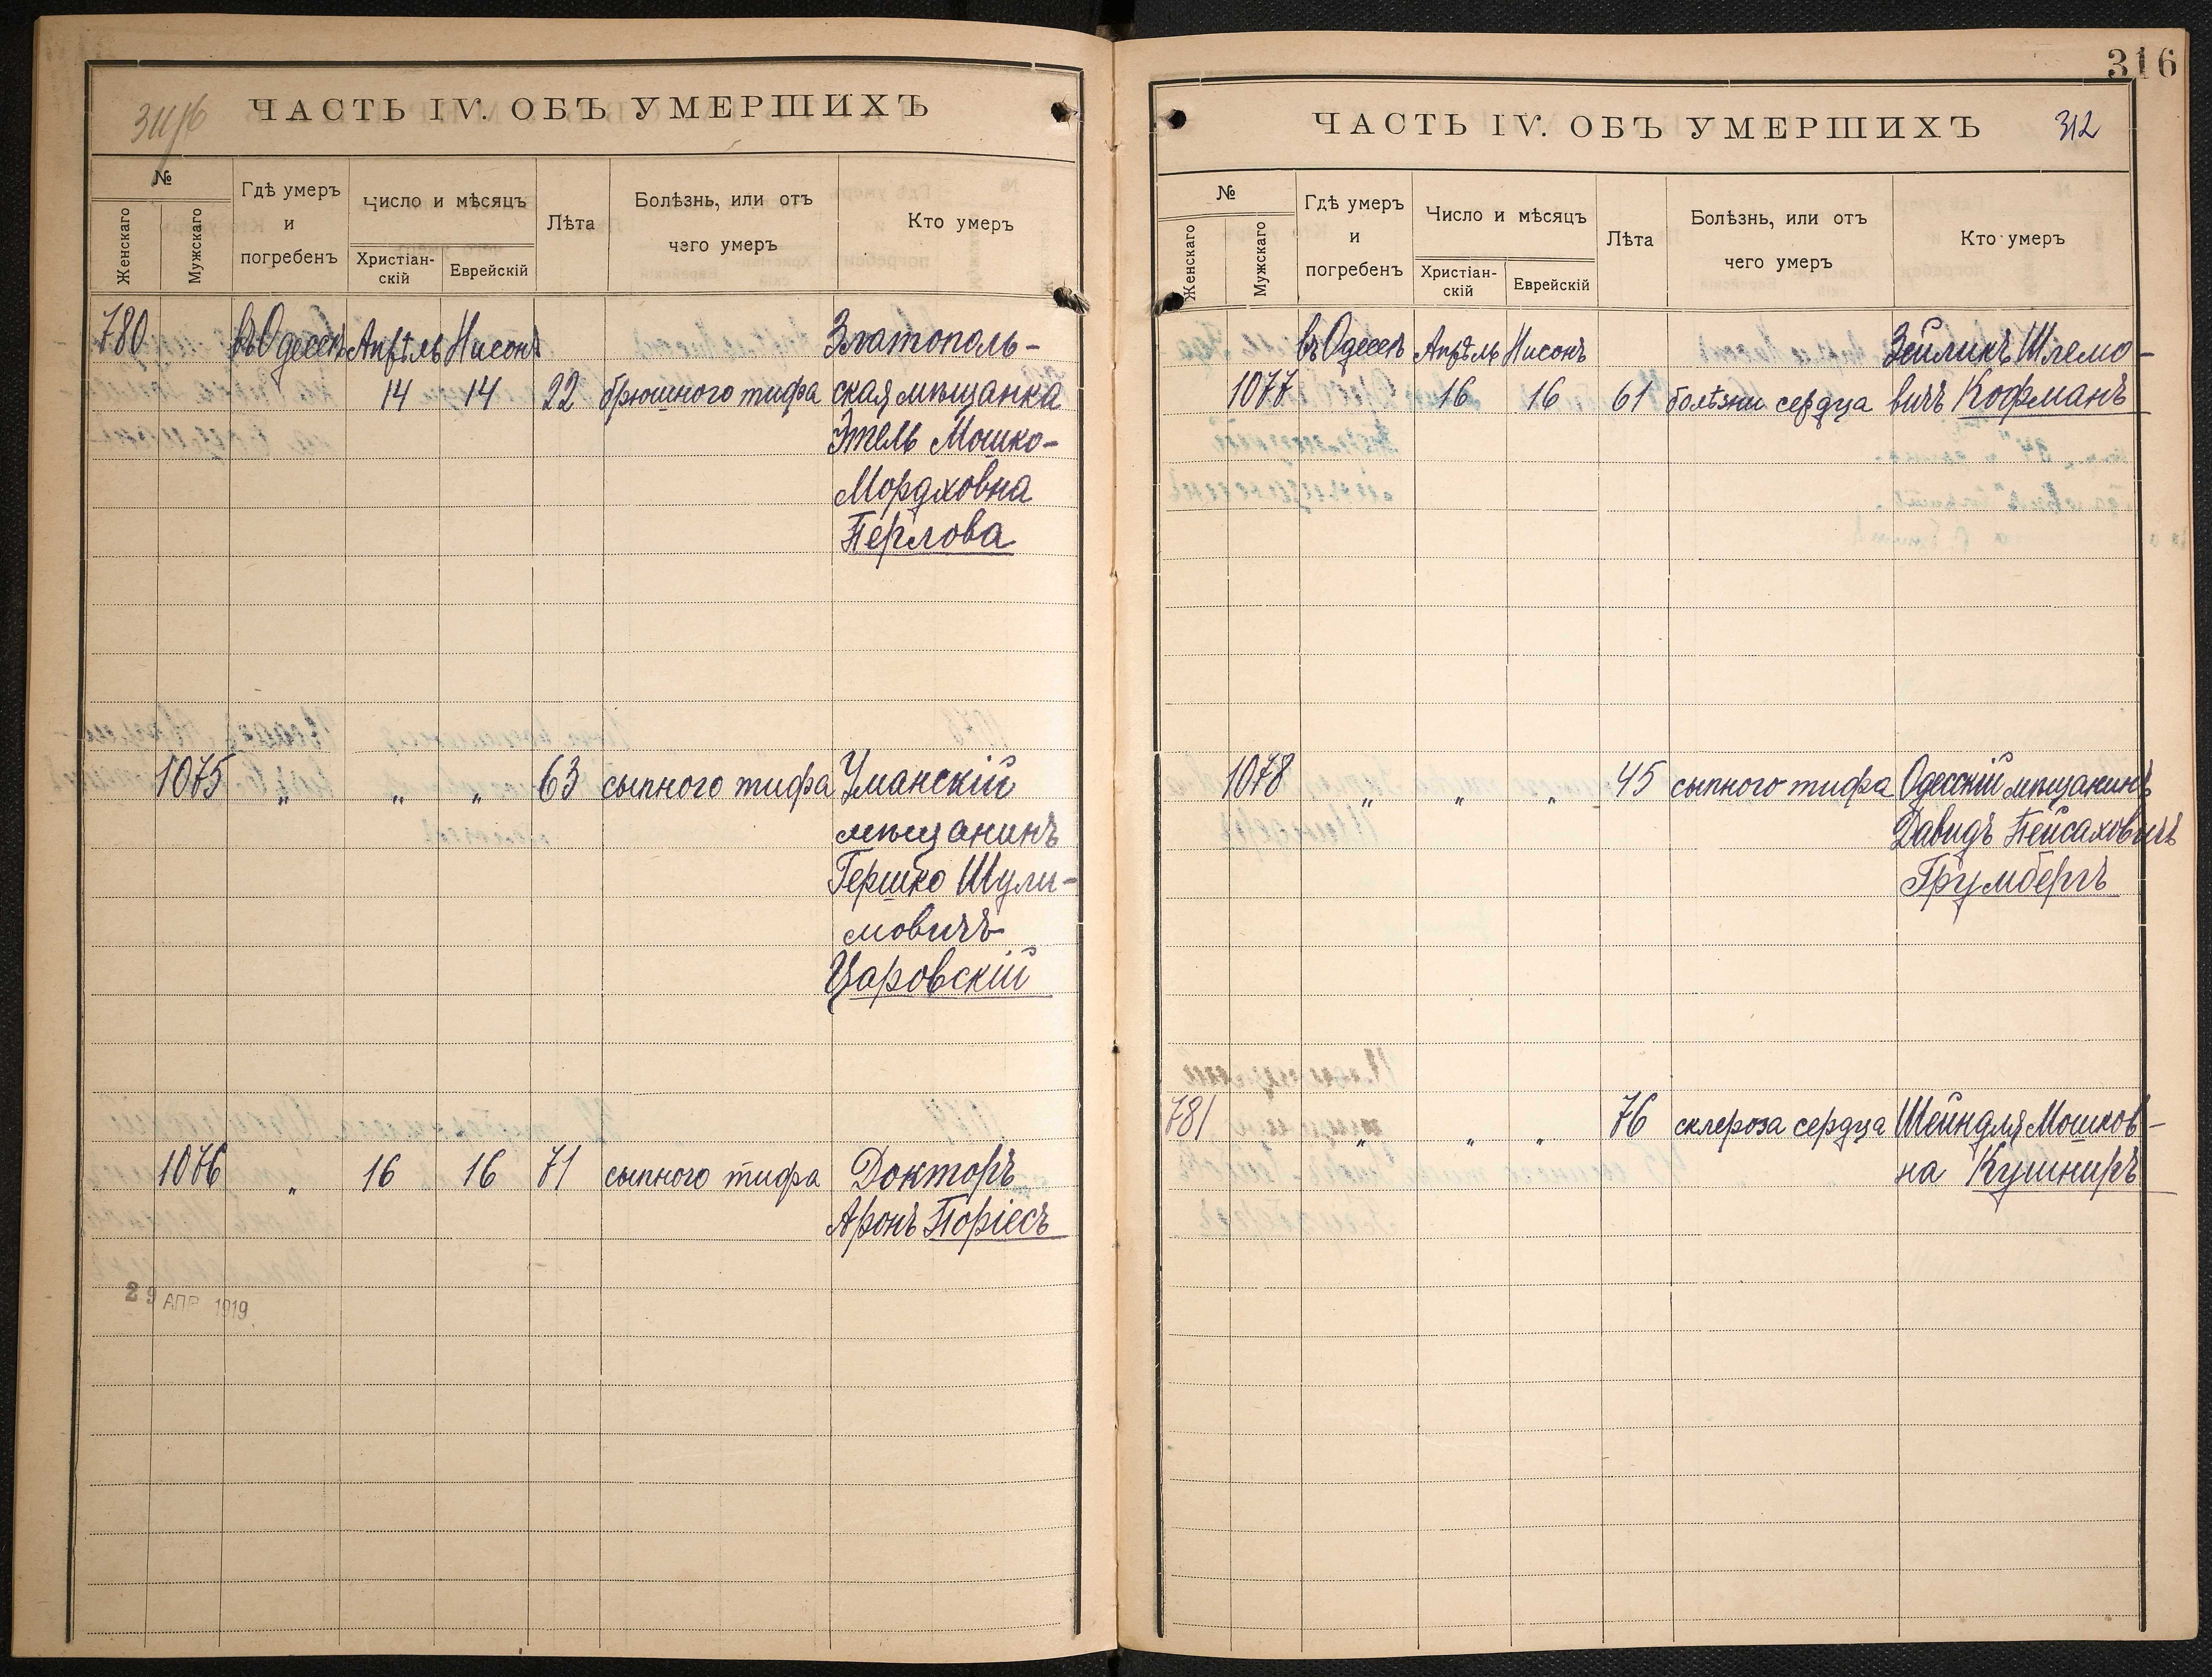 316
ЧАСТЬ IV. ОБЪ УМЕРШИХЪ
№
Женскаго
Мужскаго
Гдѣ умеръ
и
погребенъ
Число и мѣсяцъ
Христіан-
скій
Еврейскій
Лѣта
Болѣзнь, или отъ
чего умеръ
Кто умеръ
780 въ Одессѣ Апрѣль Нисонъ Златополь-
14 14 22 брюшного тифа ская мѣщанка
Этель Мошко-
Мордховна
Перлова
1075 " " " 63 сыпного тифа Уманскій
мѣщанинъ
Гершко Шули-
мовичъ
Царовскій
1076 " 16 16 71 сыпного тифа Докторъ
Аронъ Поріесъ
29 АПР 1919
ЧАСТЬ IV. ОБЪ УМЕРШИХЪ 312
№
Женскаго
Мужскаго
Гдѣ умеръ
и
погребенъ
Число и мѣсяцъ
Христіан-
скій
Еврейскій
Лѣта
Болѣзнь, или отъ
чего умеръ
Кто умеръ
въ Одессѣ Апрѣль Нисонъ Зейликъ Шлемо-
1077 16 16 61 болѣзни сердца вичъ Кофманъ
1078 " " " 45 сыпного тифа Одесскій мѣщанинъ
Давидъ Пейсаховичъ
Грумбергъ
781 " " " 76 склероза сердца Шейндля Мошков-
на Кушниръ